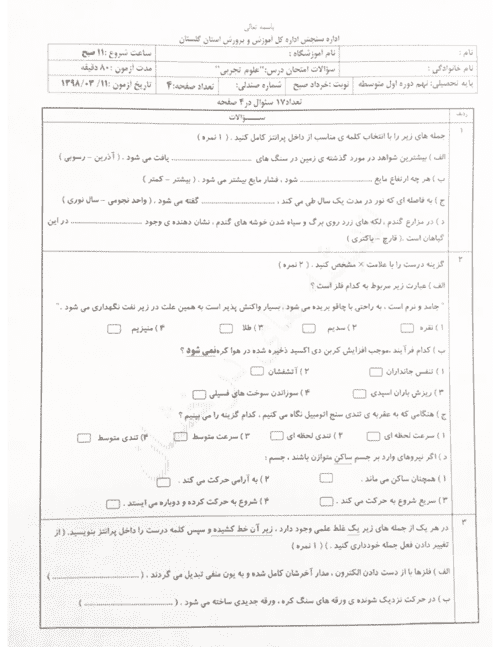 باسمه تعالی
اداره سنجش اداره کل آموزش و پرورش استان گلستان
نام : نام آموزشگاه : ساعت شروع : ۱۱ صبح
نام خانوادگی : سؤالات امتحان درس:"علوم تجربی" مدت آزمون : ۸۰ دقیقه
پایه تحصیلی: نهم دوره اول متوسطه نوبت :خرداد صبح شماره صندلی: تعداد صفحه:۴ تاریخ آزمون :۱۱/ ۰۳/ ۱۳۹۸
تعداد۱۷ سئوال در۴ صفحه
ردیف ســـؤالات
۱ جمله های زیر را با انتخاب کلمه ی مناسب از داخل پرانتز کامل کنید . ( ۱ نمره )
الف ) بیشترین شواهد در مورد گذشته ی زمین در سنگ های .......................... یافت می شود . ( آذرین – رسوبی )
ب ) هر چه ارتفاع مایع .......................... شود ، فشار مایع بیشتر می شود . ( بیشتر – کمتر )
ج ) به فاصله ای که نور در مدت یک سال طی می کند ، .......................... گفته می شود . ( واحد نجومی – سال نوری )
د ) در مزارع گندم ، لکه های زرد روی برگ و سیاه شدن خوشه های گندم ، نشان دهنده ی وجود .................. در این
گیاهان است . ( قارچ – باکتری )
۲ گزینه درست را با علامت × مشخص کنید . ( ۲ نمره )
الف ) عبارت زیر مربوط به کدام فلز است ؟
" جامد و نرم است ، به راحتی با چاقو بریده می شود ، بسیار واکنش پذیر است به همین علت در زیر نفت نگهداری می شود . "
۱ ) نقره ۲ ) سدیم ۳ ) طلا ۴ ) منیزیم
ب ) کدام فرآیند ،موجب افزایش کربن دی اکسید ذخیره شده در هوا کره نمی شود ؟
۱ ) تنفس جانداران ۲ ) آتشفشان
۳ ) ریزش باران اسیدی ۴ ) سوزاندن سوخت های فسیلی
ج ) هنگامی که به عقربه ی تندی سنج اتومبیل نگاه می کنیم ، کدام گزینه را می بینیم ؟
۱ ) سرعت لحظه ای ۲ ) تندی لحظه ای ۳ ) سرعت متوسط ۴) تندی متوسط
د ) اگر نیروهای وارد بر جسم ساکن متوازن باشند ، جسم :
۱ ) همچنان ساکن می ماند . ۲ ) به آرامی حرکت می کند .
۳ ) سریع شروع به حرکت می کند . ۴ ) شروع به حرکت کرده و دوباره می ایستد .
۳ در هر یک از جمله های زیر یک غلط علمی وجود دارد ، زیر آن خط کشیده و سپس کلمه درست را داخل پرانتز بنویسید. ( از
تغییر دادن فعل جمله خودداری کنید . ) ( ۱ نمره )
الف ) فلزها با از دست دادن الکترون ، مدار آخرشان کامل شده و به یون منفی تبدیل می گردند . ( .......................... )
ب ) در حرکت نزدیک شونده ی ورقه های سنگ کره ، ورقه جدیدی ساخته می شود . ( .......................... )